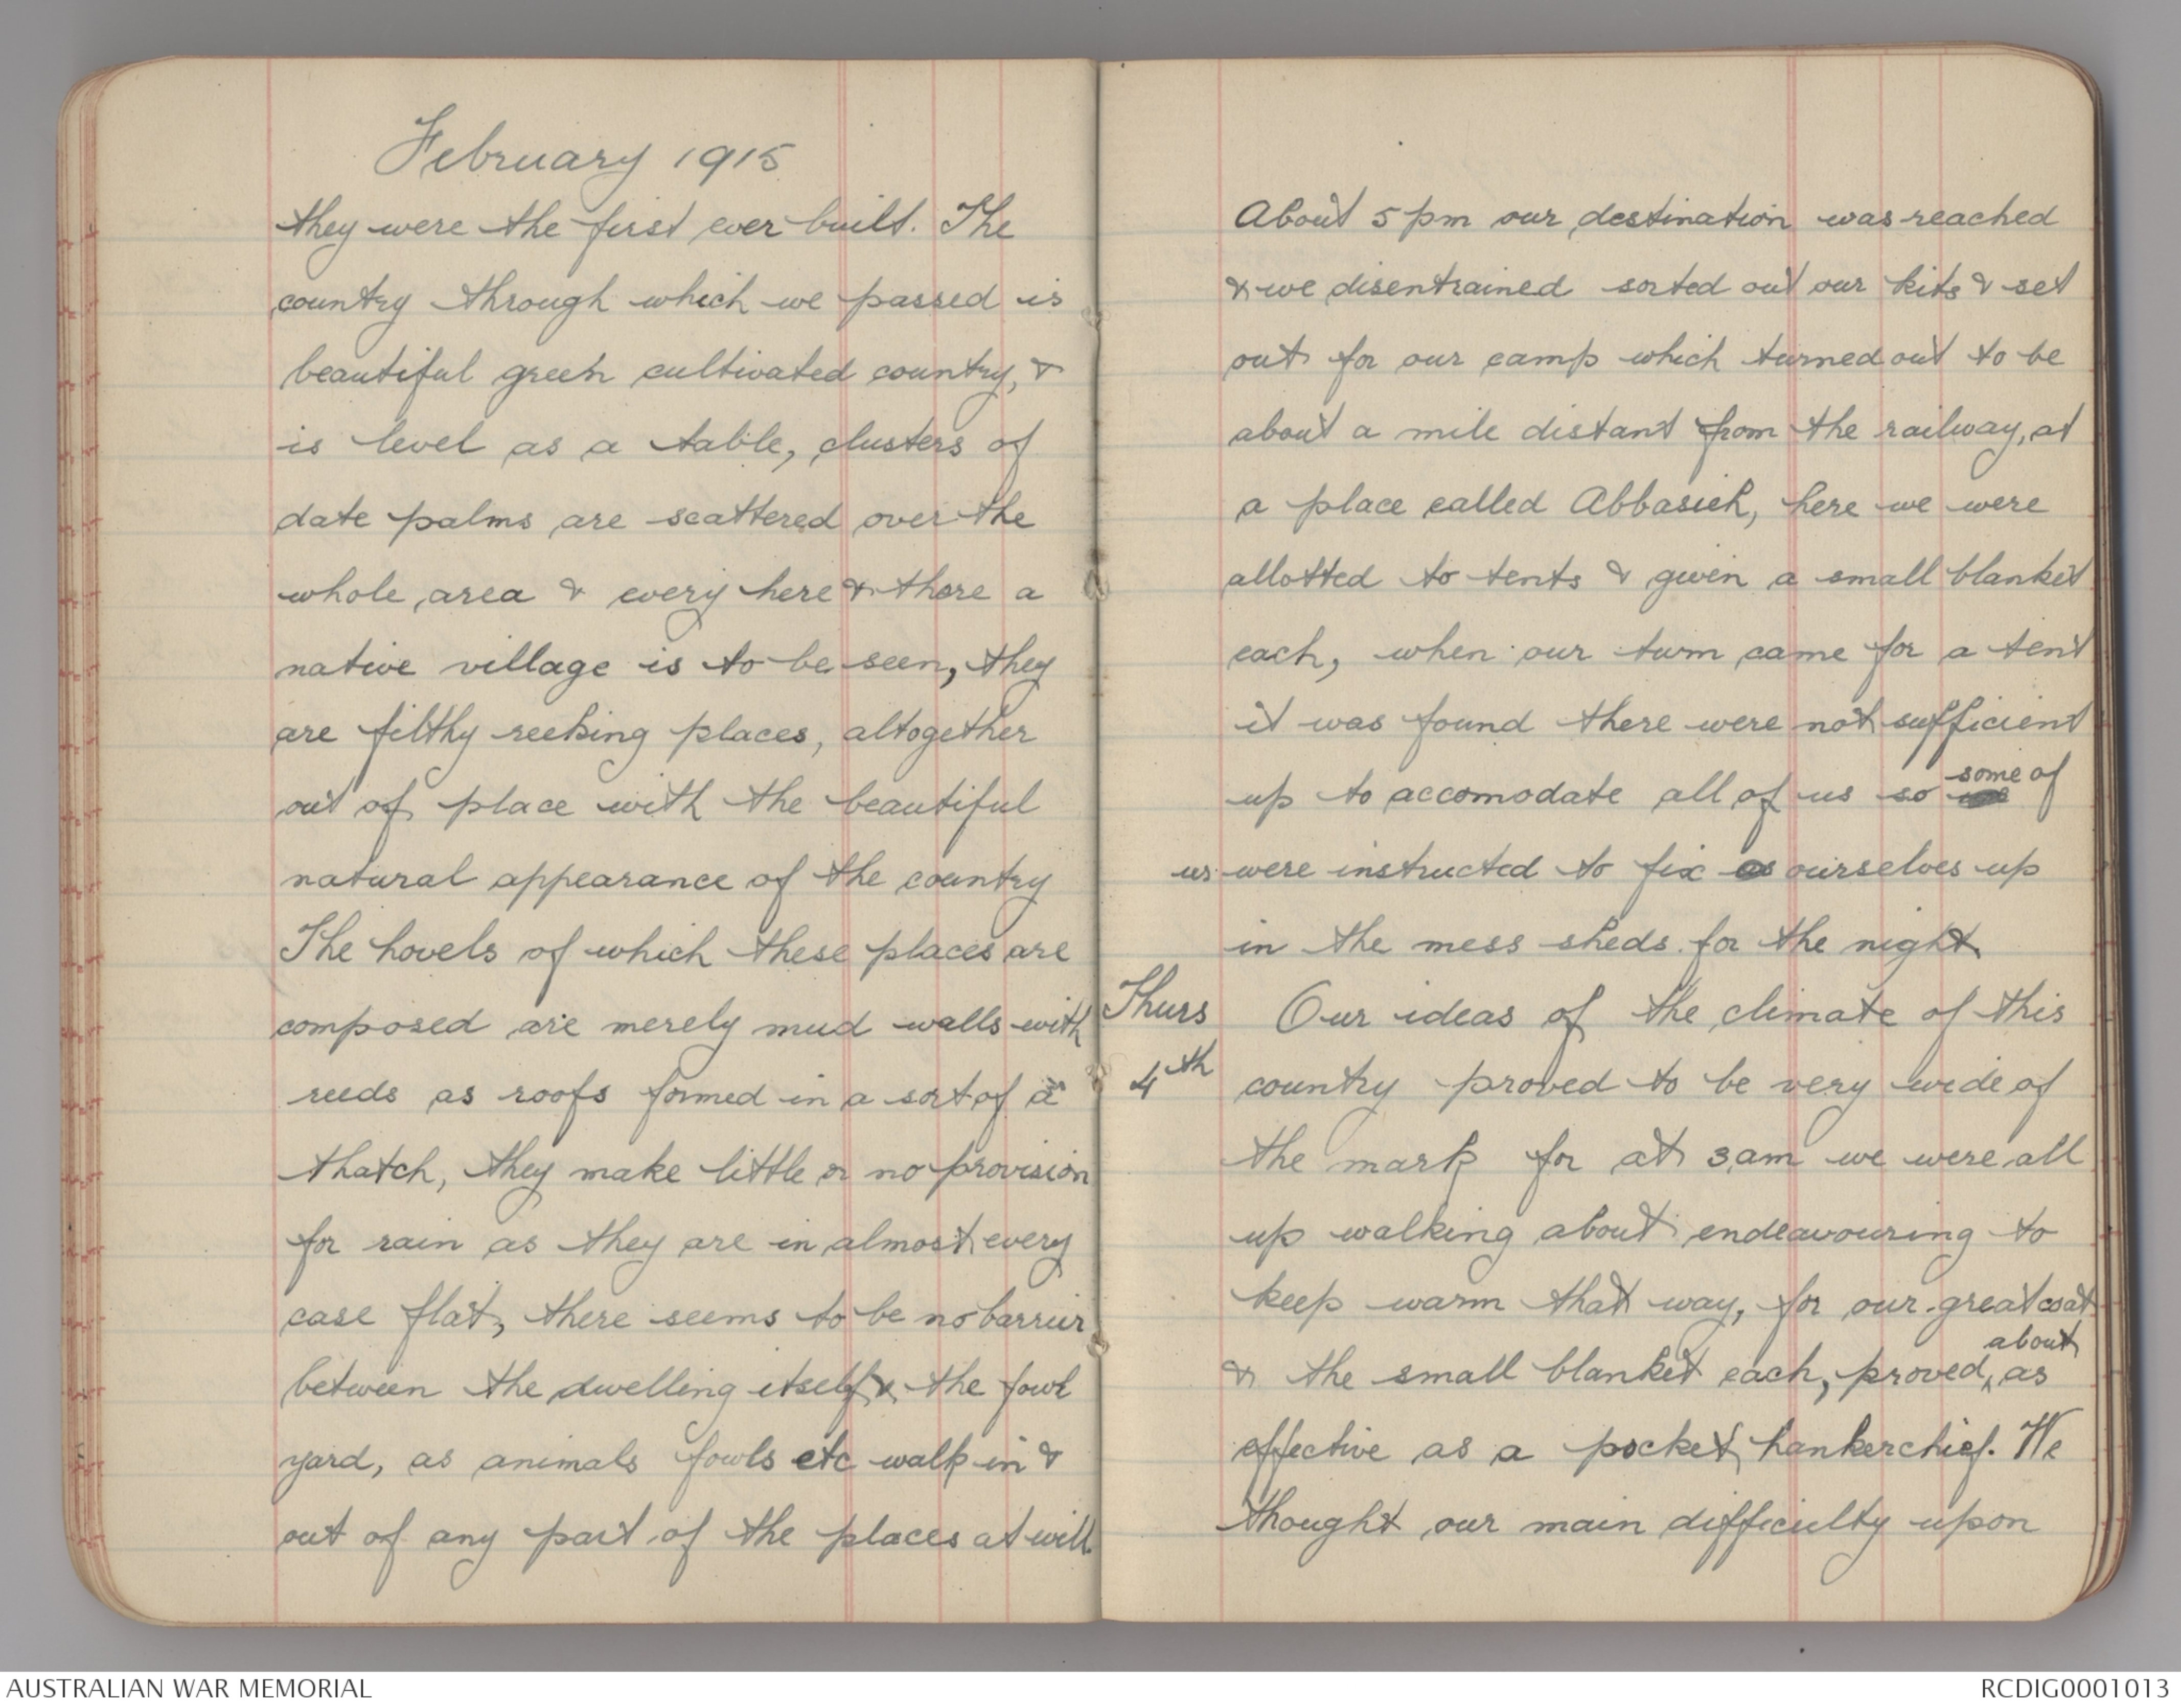 February 1915
they were the first ever built. The
country through which we passed is
beautiful green cultivated country, &
is level as a table, clusters of
date palms are scattered over the
whole area & every here & there a
native village is to be seen, they
are filthy reeking places, altogether
out of place with the beautiful
natural appearance of the country
The hovels of which these places are
composed are merely mud walls with
reeds as roofs formed in a sort of a
thatch, they make little or no provision
for rain as they are in almost every
case flat, there seems to be no barrier
between the dwelling itself & the fowl
yard, as animals fowls etc walk in &
out of any part of the places at will.
About 5 pm our destination was reached
& we disentrained sorted out our kits & set
out for our camp which turned out to be
about a mile distant from the railway, at
a place called Abbasieh, here we were
allotted to tents & given a small blanket
each, when our turn came for a tent
it was found there were not sufficient
up to accomodate all of us so some of
us were instructed to fix ourselves up
in the mess sheds for the night
Thurs Our ideas of the climate of this
4th country proved to be very wide of
the mark for at 3 am we were all
up walking about endeavouring to
keep warm that way, for our great coat
& the small blanket each, proved, about as
effective as a pocket hankerchief. We
thought our main difficulty upon
AUSTRALIAN WAR MEMORIAL
RCDIG0001013